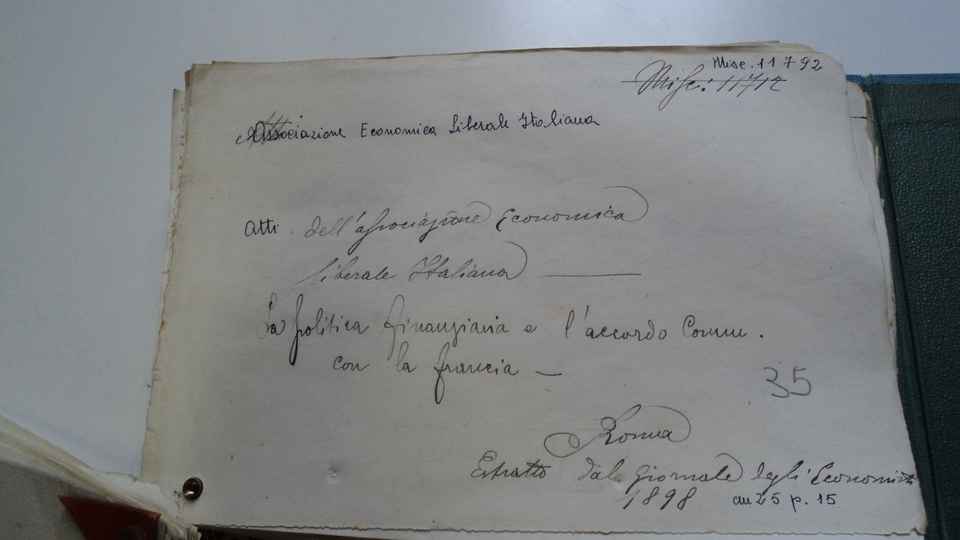 Misc. 11792
Misc: 11712
Associazione Economica Liberale Italiana
Atti dell'associazione Economica
liberale Italiana
La politica finanziaria e l'accordo Comm.
con la francia —
35
Roma
Estratto dal giornale degli Economisti
1898 in 25 p. 15